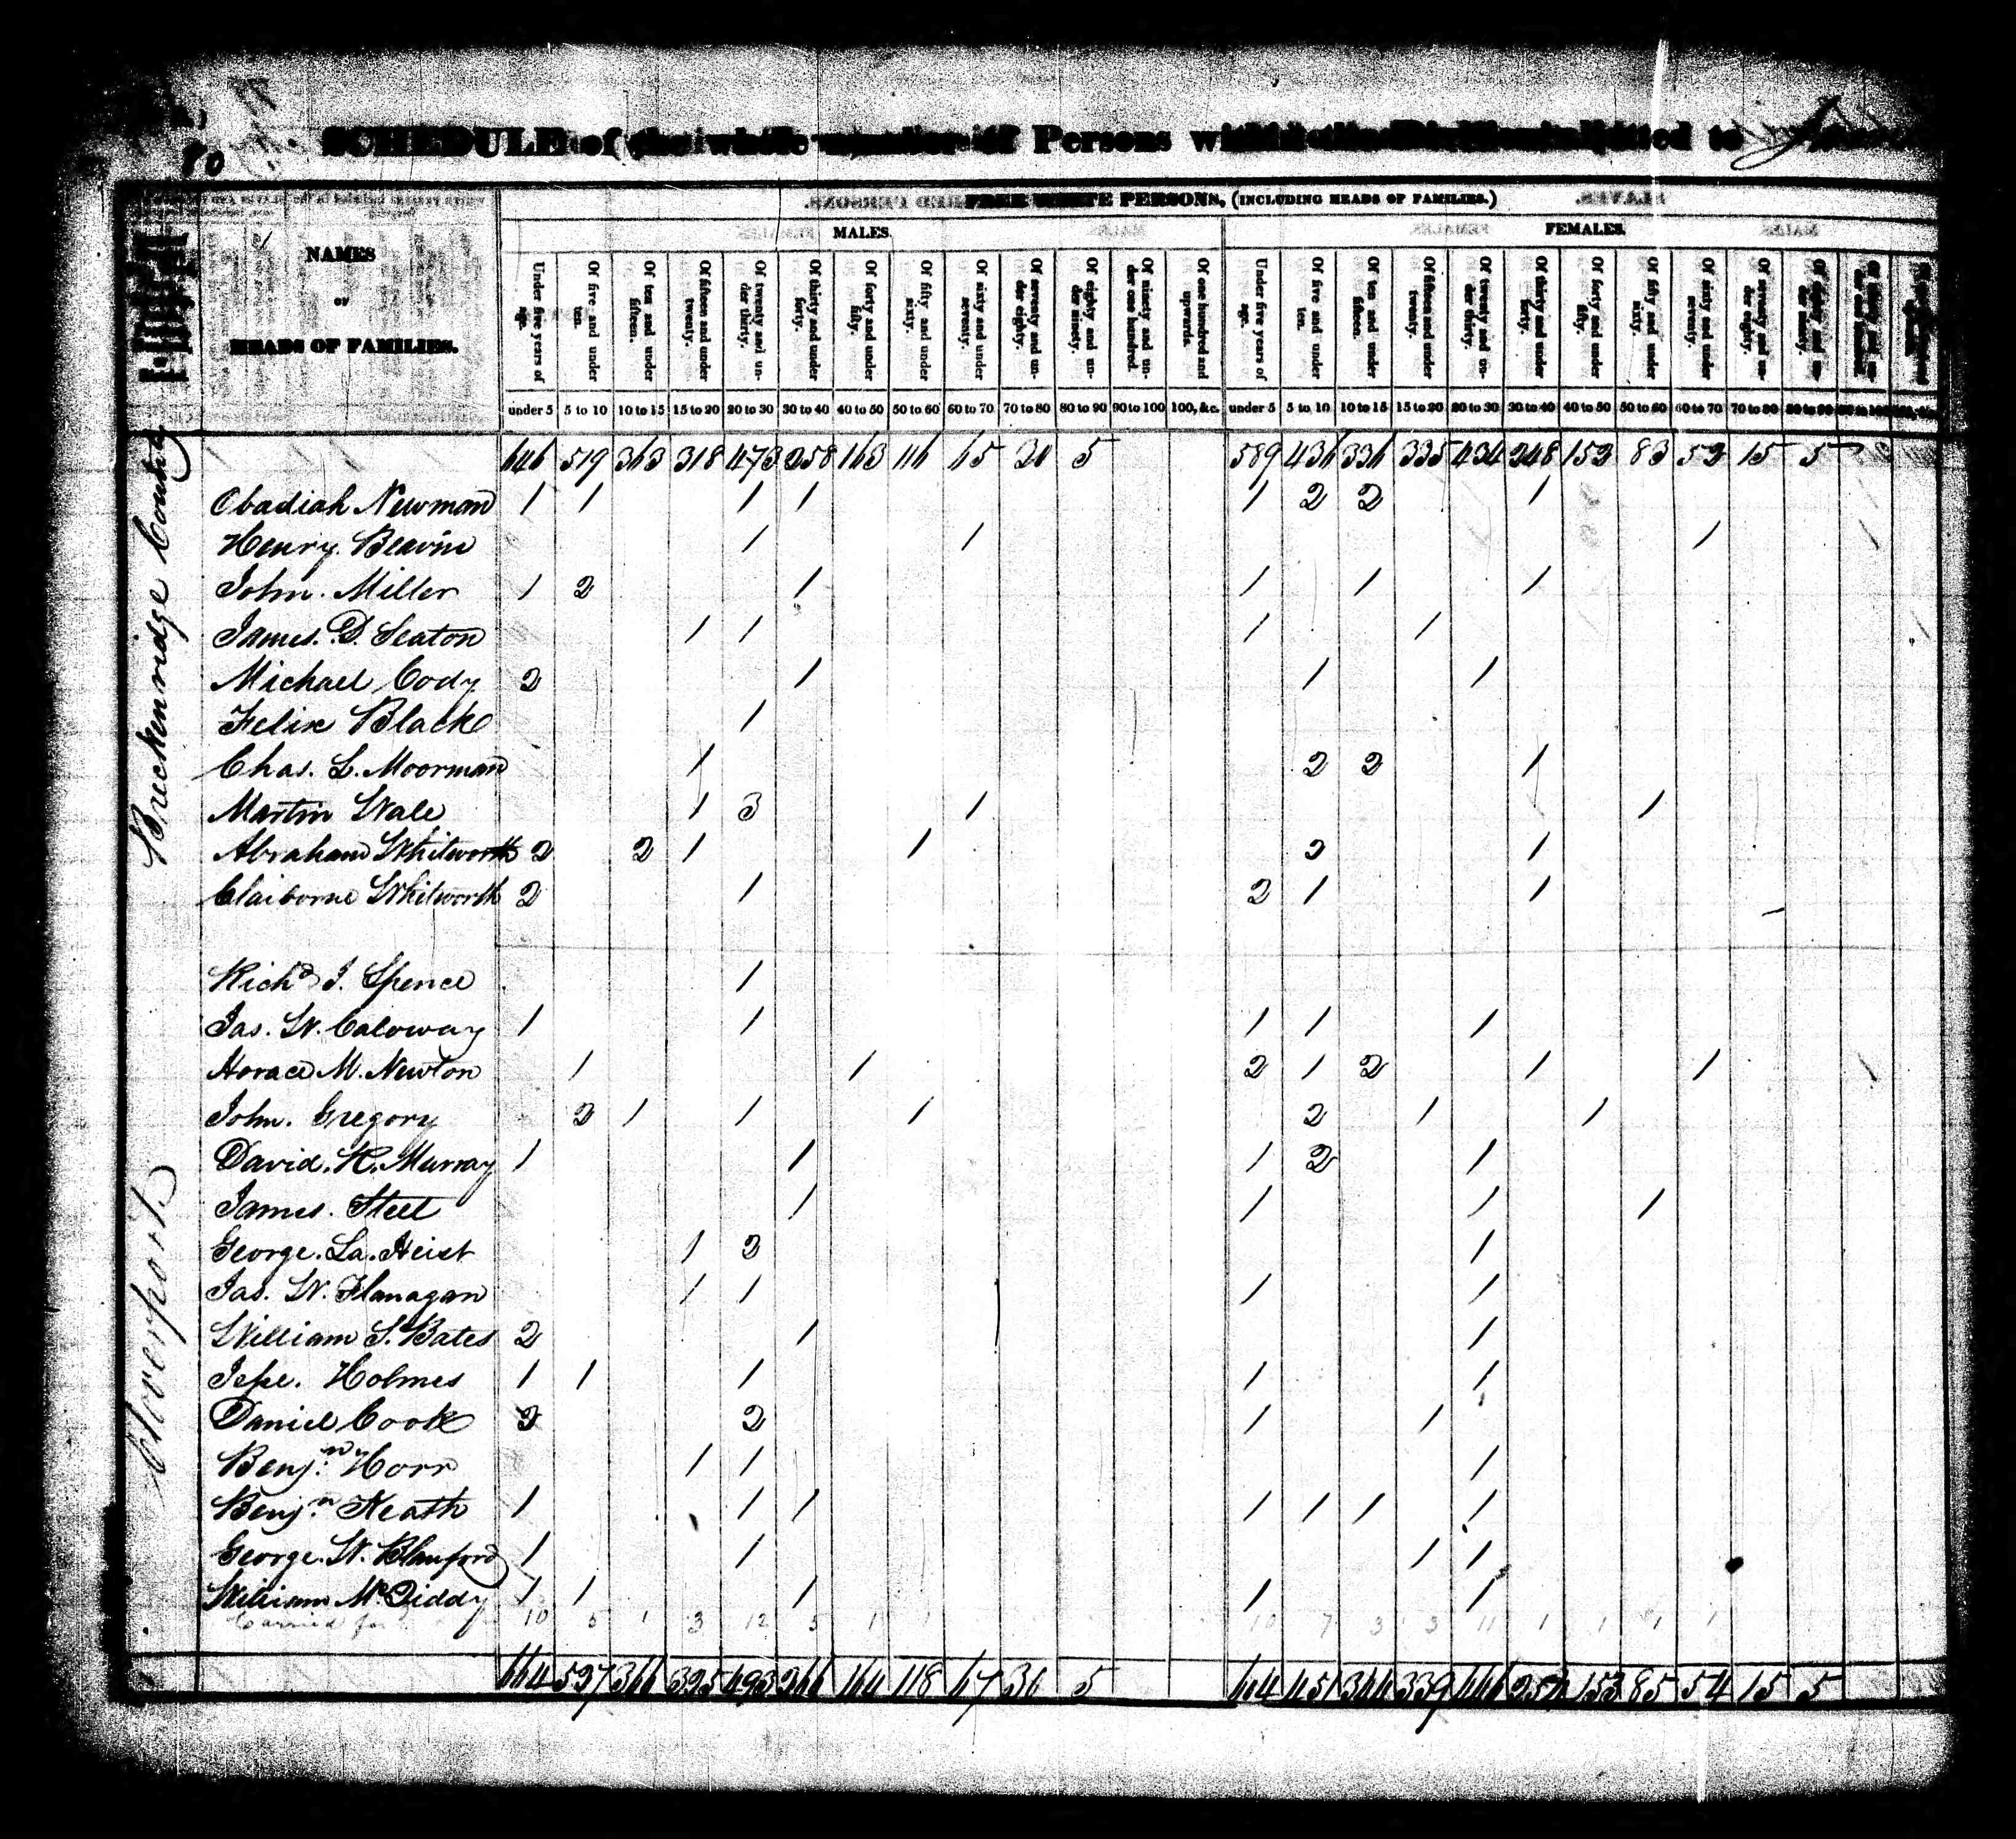 80
SCHEDULE of the whole number of Persons within the allotted to
FREE WHITE PERSONS, (INCLUDING HEADS OF FAMILIES.)
MALES. FEMALES.
NAMES
OF
HEADS OF FAMILIES.
Under five years of age. Of five and under ten. Of ten and under fifteen. Of fifteen and under twenty. Of twenty and under thirty. Of thirty and under forty. Of forty and under fifty. Of fifty and under sixty. Of sixty and under seventy. Of seventy and under eighty. Of eighty and under ninety. Of ninety and under one hundred. Of one hundred and upwards. Under five years of age. Of five and under ten. Of ten and under fifteen. Of fifteen and under twenty. Of twenty and under thirty. Of thirty and under forty. Of forty and under fifty. Of fifty and under sixty. Of sixty and under seventy. Of seventy and under eighty. Of eighty and under ninety.
under 5 5 to 10 10 to 15 15 to 20 20 to 30 30 to 40 40 to 50 50 to 60 60 to 70 70 to 80 80 to 90 90 to 100 100, &c. under 5 5 to 10 10 to 15 15 to 20 20 to 30 30 to 40 40 to 50 50 to 60 60 to 70 70 to 80 80 to 90
646 519 363 318 473 258 163 116 65 5 589 436 336 335 434 248 152 83 52 15 5
Breckenridge County
Obadiah Newman 1 1 1 1 1 2 2 1
Henry Beavin 1 1 1
John Miller 1 2 1 1 1 1
James D. Seaton 1 1 1 1
Michael Cody 2 1 1 1
Felix Black 1
Chas. L. Moorman 1 2 2 1
Martin Wale 1 3 1 1
Abraham Whitworth 2 2 1 1 2 1
Claiborne Whitworth 2 1 2 1 1
Cloverport
Richd J. Spence 1
Jas. W. Caloway 1 1 1 1 1
Horace M. Newton 1 1 2 1 2 1 1
John Gregory 2 1 1 1 2 1 1
David R. Murray 1 1 1 2 1
James Steel 1 1 1 1
George La Heist 1 2 1
Jas. W. Flanagan 1 1 1 1
William S. Bates 2 1 1
Jesse Holmes 1 1 1 1 1
Daniel Cook 2 2 1 1
Benjn Horr 1 1 1
Benjn Keath 1 1 1 1 1 1 1
George W. Blanford 1 1 1 1
William McDiddy 1 1 1 1 1
Carried 10 5 1 3 12 5 1 1 10 7 3 3 11 1 1 1 1
664 527 366 325 493 266 164 118 67 5 451 344 339 446 153 85 54 15 5